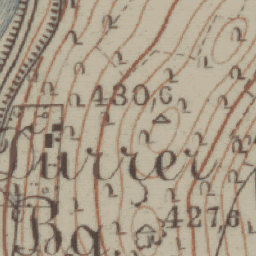 430,6
Dürrer
427,6
Bg.